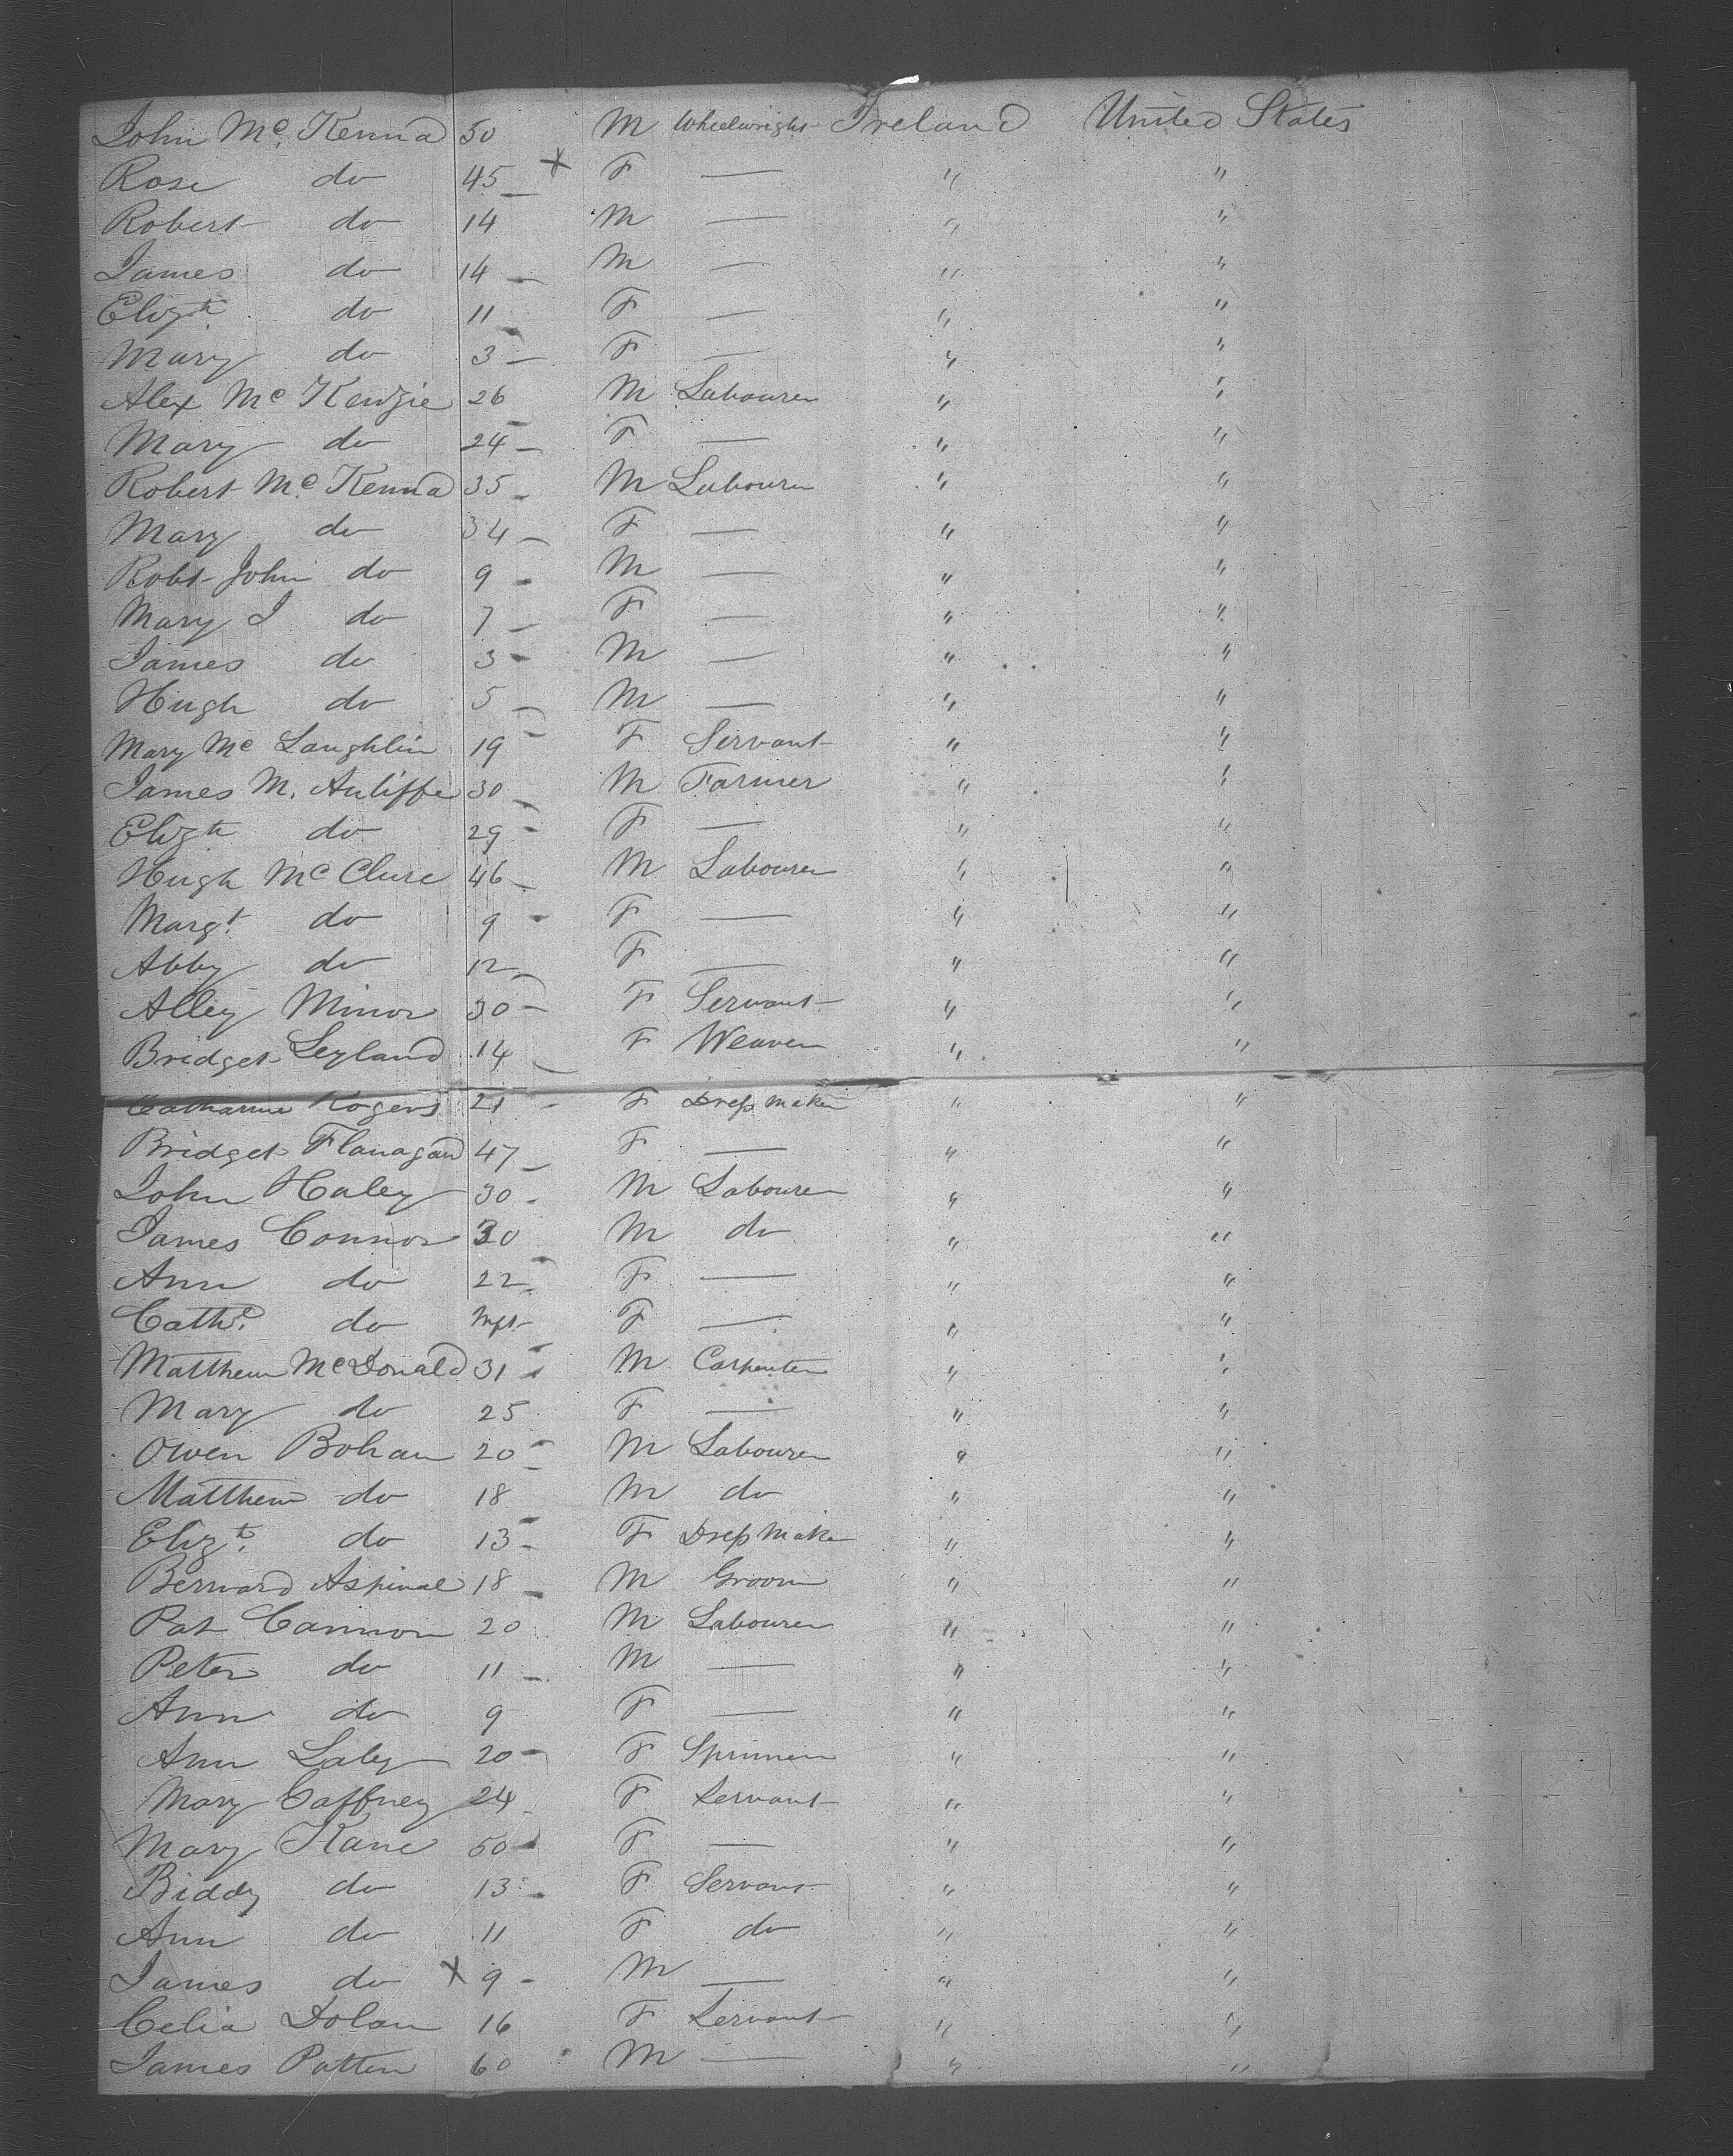 John Mc. Kenna 50 M Wheelwright Ireland United States
Rose do 45 x F — " "
Robert do 14 M — " "
James do 14 M — " "
Elizth do 11 F — " "
Mary do 3 F — " "
Alex Mc Kenzie 26 M Labourer " "
Mary do 24 F — " "
Robert Mc. Kenna 35 M Labourer " "
Mary do 34 F — " "
Robt John do 9 M — " "
Mary J do 7 F — " "
James do 3 M — " "
Hugh do 5 M — " "
Mary Mc Laughlin 19 F Servant " "
James M. Auliffe 30 M Farmer " "
Elizth do 29 F — " "
Hugh Mc Clure 46 M Labourer " "
Margt. do 9 F — " "
Abby do 12 F — " "
Alley Minor 30 F Servant " "
Bridget Leyland 14 F Weaver " "
Catharine Rogers 21 F Dress Maker " "
Bridget Flanagan 47 F — " "
John Haley 30 M Labourer " "
James Connor 30 M do " "
Ann do 22 F — " "
Cathe. do Inft F — " "
Matthew McDonald 31 M Carpenter " "
Mary do 25 F — " "
Owen Bohan 20 M Labourer " "
Matthew do 18 M do " "
Elizth. do 13 F Dress Maker " "
Bernard Aspinal 18 M Groom " "
Pat Cannon 20 M Labourer " "
Peter do 11 M — " "
Ann do 9 F — " "
Ann Laly 20 F Spinner " "
Mary Gaffney 24 F Servant " "
Mary Kane 50 F — " "
Biddy do 13 F Servant " "
Ann do 11 F do " "
James do x 9 M — " "
Celia Dolan 16 F Servant " "
James Patten 60 M — " "